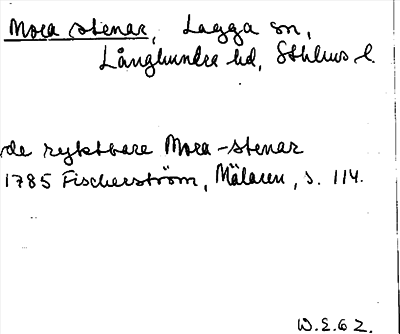 Mora stenar, Lagga sn,
Långhundra hd, Sthlms l.
de ryktbare Mora-stenar
1785 Fischerström, Mälaren, s. 114.
W.E.62.